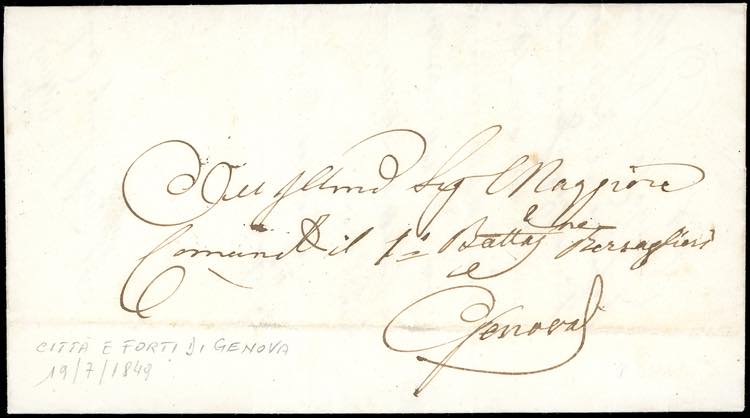 All Illmo Sig Maggiore
Comandte il 1o Battagne Bersaglieri
Genova
CITTÀ E FORTI DI GENOVA
19/7/1849